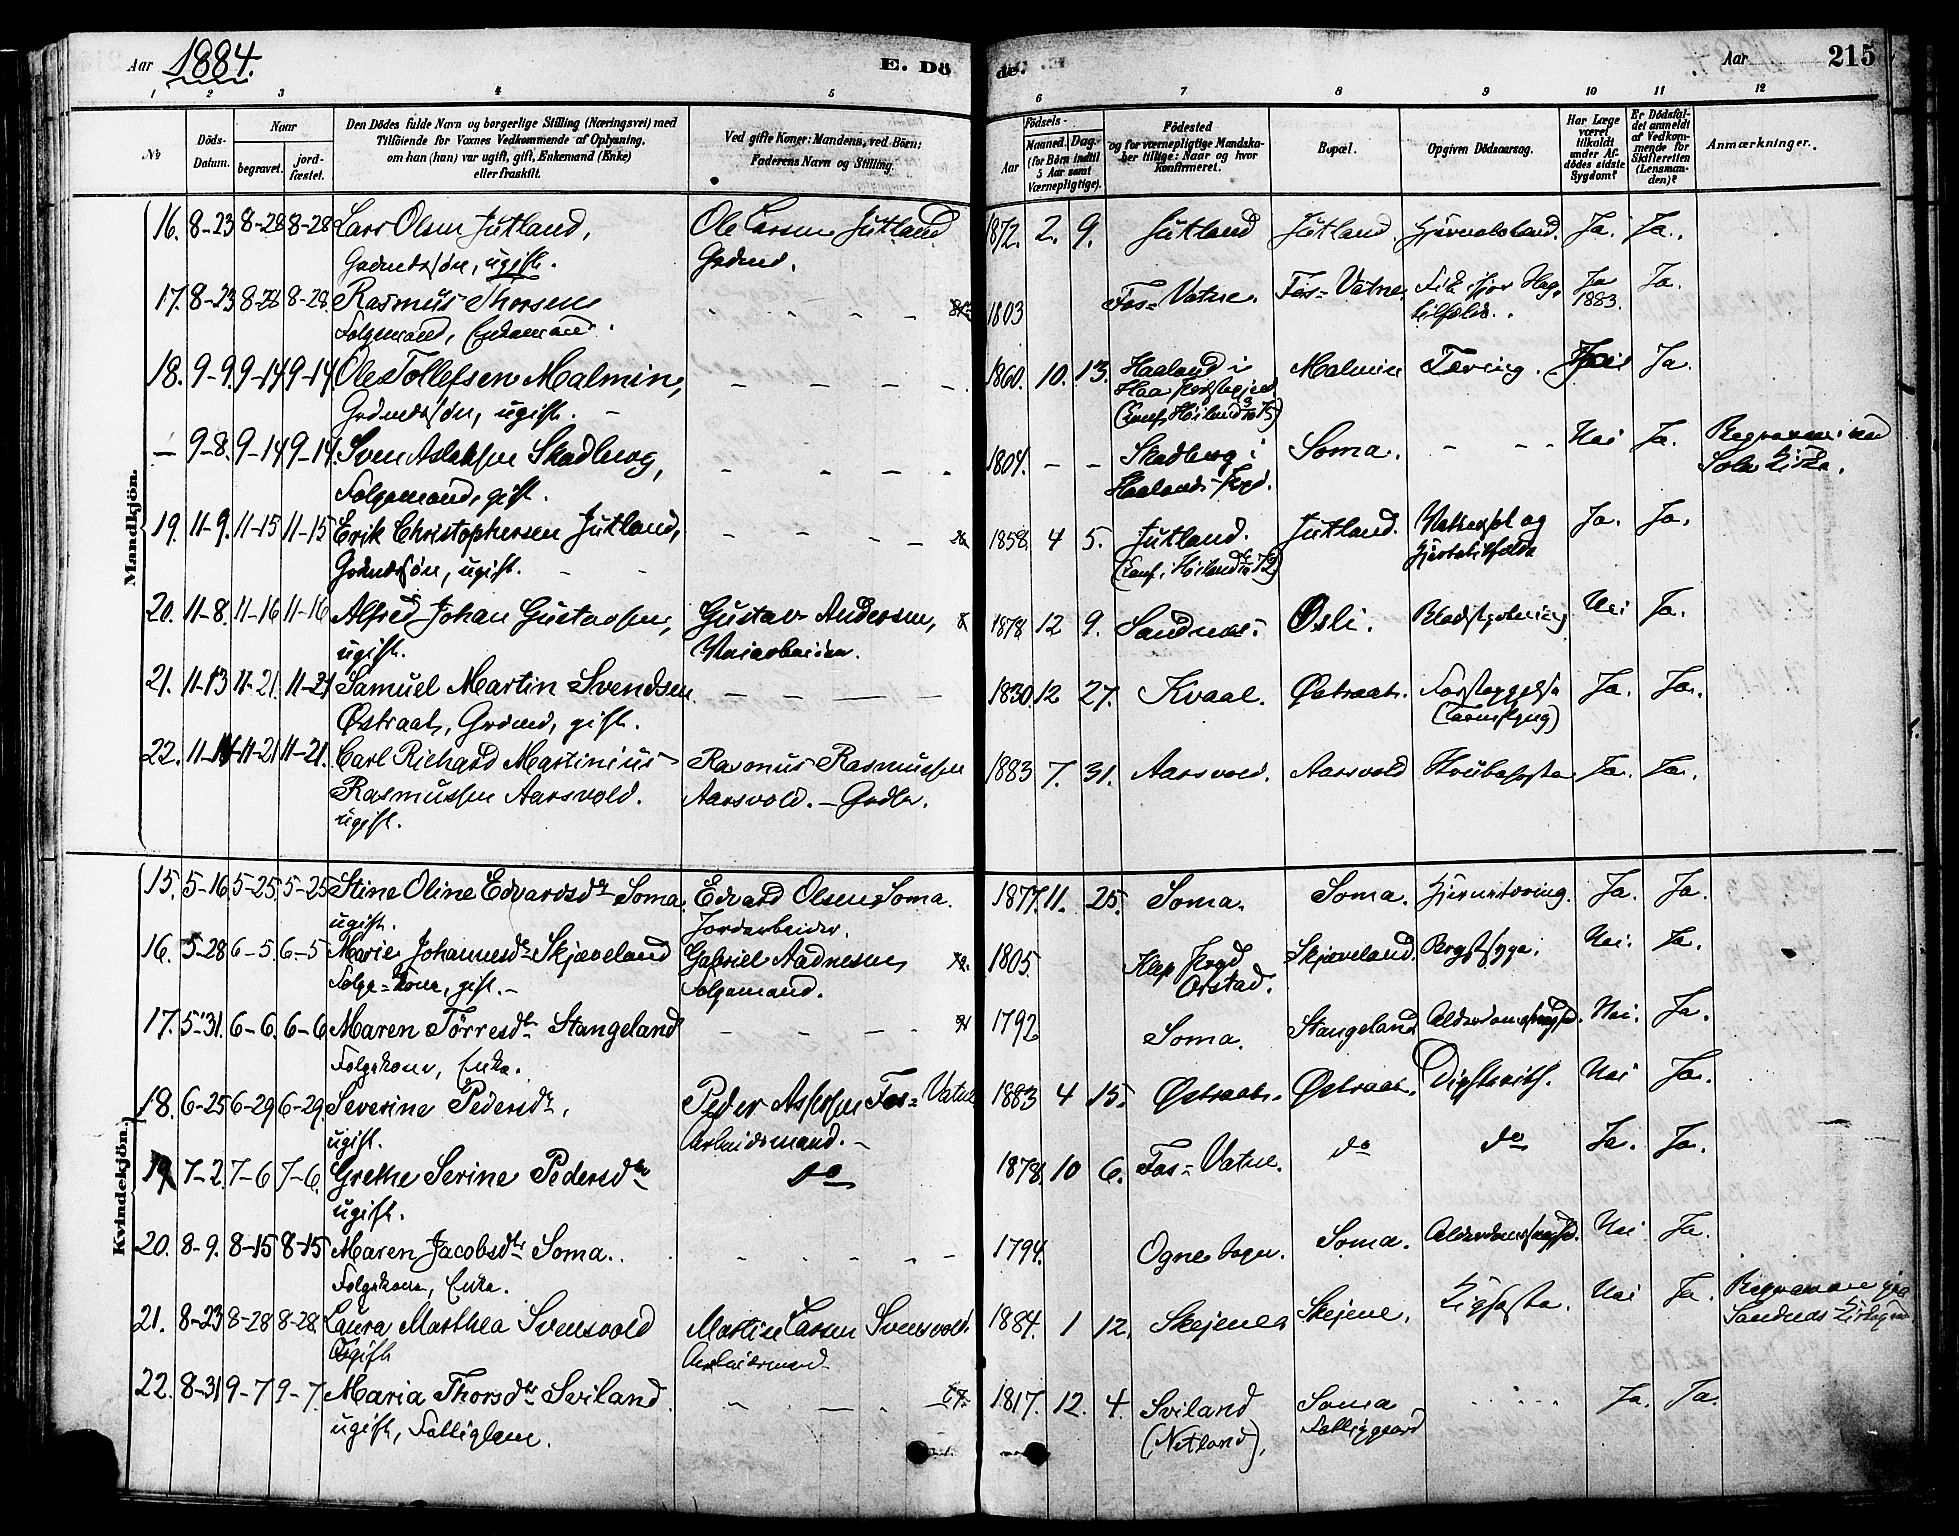 Aar 1884.
E. Dö
de.
Aar
215
1 2 3 4 5 6 7 8 9 10 11 12
No
Döds-
Datum.
Naar
begravet.
jord-
fæstet.
Den Dödes fulde Navn og borgerlige Stilling (Næringsvei) med
Tilföiende for Voxnes Vedkommende af Oplysning,
om han (hun) var ugift, gift, Enkemand (Enke)
eller fraskilt.
Ved gifte Koner: Mandens, ved Börn:
Faderens Navn og Stilling.
Födsels-
Aar
Maaned.
Dag.
(for Börn indtil
5 Aar samt
Værnepligtige).
Födested
og for værnepligtige Mandska-
ber tillige: Naar og hvor
Konfirmeret.
Bopæl.
Opgiven Dödsaarsag.
Har Læge
været
tilkaldt
under Af-
dödes sidste
Sygdom?
Er Dödsfal-
det anmeldt
af Vedkom-
mende for
Skifteretten
(Lensman-
den)?
Anmærkninger.
Mandkjön.
16. 8-23 8-28 8-28 Lars Olsen Jutland, Ole Larsen Jutland 1872. 2. 9. Jutland Jutland. Ja. Ja.
Grdmdssøn, ugift. Grdmd.
17. 8-23 8-28 8-28. Rasmus Thorsen 1803 Fos-Vatne. Fos-Vatne. Ja 1883. Ja.
Folgemand, Enkemand.
18. 9-9. 9-14 9-14 Ole Tollefsen Malmin, 1860. 10. 13. Haaland i Malmin Tæring. Ja.
Grdmdssøn, ugift.
— 9-8. 9-14 9-14. Sven Aslaksen Skadberg, 1804. Skadberg i Soma. Nei Ja.
Folgemand, gift. Haalands Prgd. Sola Kirke.
19. 11-9. 11-15 11-15 Erik Christophersen Jutland, 1858. 4 5. Jutland. Jutland. Ja. Ja.
Grdmdssøn, ugift.
20. 11-8. 11-16 11-16 Alfred Johan Gustavsen, Gustav Andersen, 1878 12 9. Sandnæs Osli. Nei Ja.
ugift. Veiarbeider.
21. 11-13 11-21. 11-21 Samuel Martin Svendsen 1830 12 27. Kvaal. Østraat. Ja. Ja.
Østraat, Grdmd, gift.
22. 11-21 11-21. Carl Richard Martinius Rasmus Rasmussen 1883 7. 31. Aarsvold. Aarsvold Strubehoste Ja. Ja.
Rasmussen Aarsvold. Aarsvold.
ugift.
Kvindekjön.
15. 5-16. 5-25 5-25 Stine Oline Edvardsdtr Soma. Edvard Olsen Soma. 1877. 11. 25. Soma. Soma. Ja. Ja.
ugift. Jordarbeider.
16. 5-28 6-5. 6-5 Marie Johannesdtr Skjæveland Gabriel Aadnesen 1805. Klep Prgd Skjæveland. Brystsyge. Nei. Ja.
Folge-Kone, gift. Folgemand. Orstad.
17. 5-31. 6-6. 6-6 Maren Tørresdtr Stangeland 1792 Soma. Stangeland Nei. Ja.
Folgekone, Enke.
18. 6-25 6-29 6-29. Severine Pedersdtr, Peder Fos-Vatne 1883 4 15. Østraat. Østraat. Diphterith. Nei Ja.
ugift. Arbeidsmand.
19. 7-2. 7-6 7-6. Grethe Serine Pedersdtr do 1878. 10 6. Fos-Vatne. do do Ja. Ja.
ugift.
20. 8-9. 8-15 8-15 Maren Jacobsdtr Soma. 1794. Soma. Nei Ja.
Folgekone, Enke.
21. 8-23 8-28 8-28. Laura Marthea Svensvold Martin Larsen Svensvold 1884. 1 12. Skejene Skejene. Kighoste. Nei Ja.
Ugift Arbeidsmand
22. 8-31 9-7 9-7. Maria Thorsdtr Sviland. 1817. 12. 4. Sviland Soma Ja. Ja.
ugift, (Netland), Fattiggaard